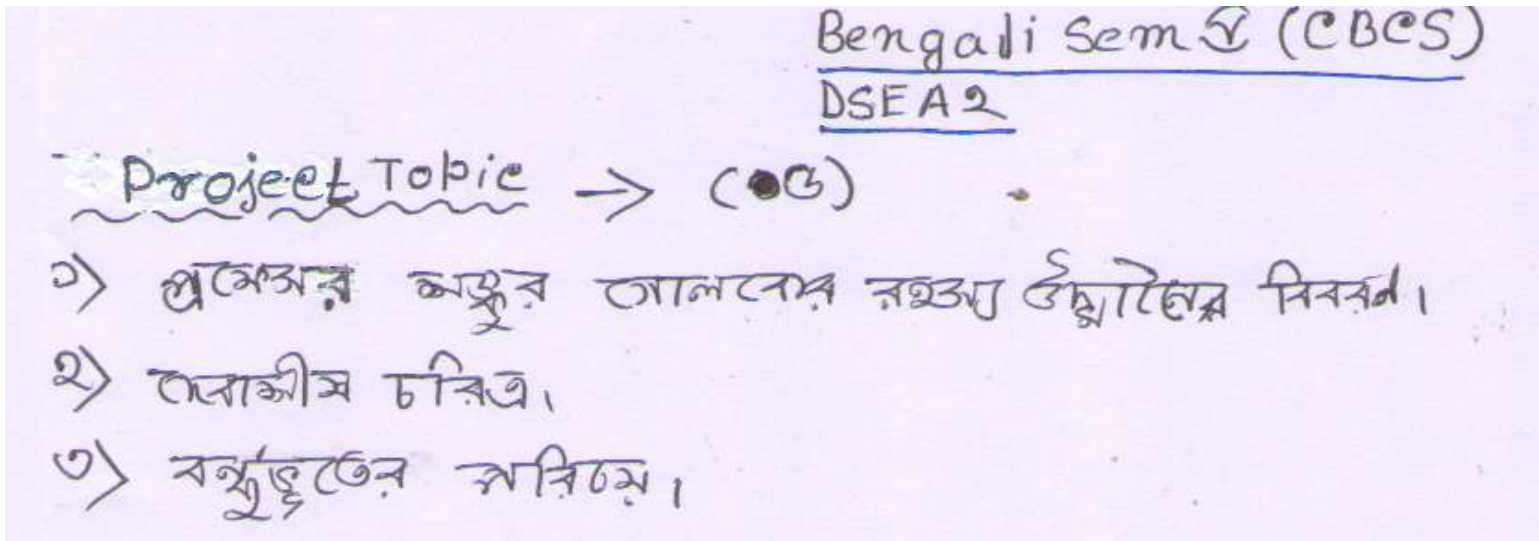 Bengali Sem V (CBCS)
DSEA2
Project Topic → (ও)
১) প্রফেসর শঙ্কুর গোলকের রহস্য উদ্ঘাটনের বিবরন।
২) দেবাশীষ চরিত্র।
৩) বন্ধুভূতের পরিচয়।